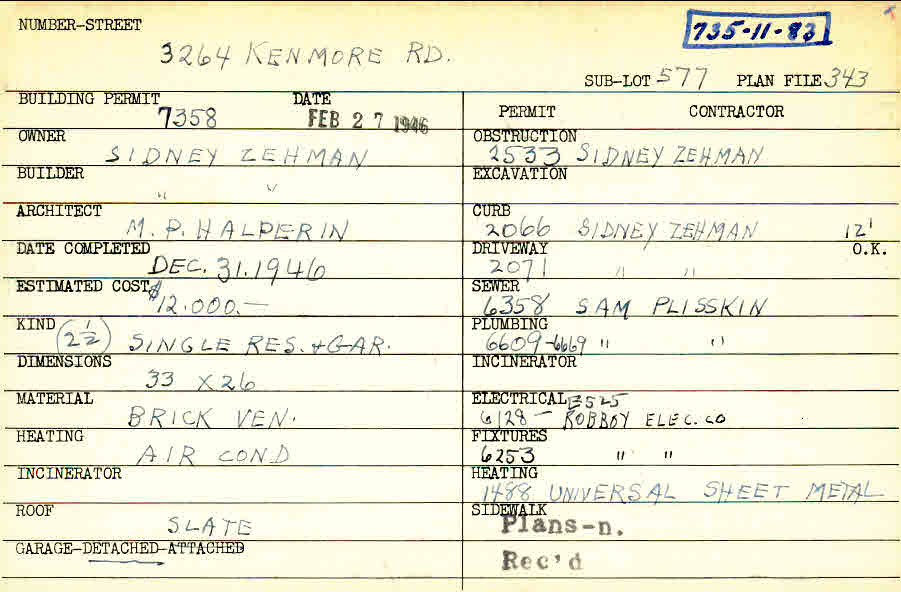 NUMBER-STREET
3264 KENMORE RD.
735-11-83
SUB-LOT 577 PLAN FILE 343
BUILDING PERMIT DATE
7358 FEB 27 1946
OWNER
SIDNEY ZEHMAN
BUILDER
" "
ARCHITECT
M. P. HALPERIN
DATE COMPLETED
DEC. 31. 1946
ESTIMATED COST
$12.000.—
KIND
(2 1/2) SINGLE RES. + GAR.
DIMENSIONS
33 X 26
MATERIAL
BRICK VEN.
HEATING
AIR COND
INCINERATOR
ROOF
SLATE
GARAGE-DETACHED-ATTACHED
PERMIT CONTRACTOR
OBSTRUCTION
2533 SIDNEY ZEHMAN
EXCAVATION
CURB
2066 SIDNEY ZEHMAN 12'
DRIVEWAY O.K.
2071 " "
SEWER
6358 SAM PLISSKIN
PLUMBING
6609-6669 " "
INCINERATOR
ELECTRICAL E525
6128 — ROBBOY ELEC. CO
FIXTURES
6253 " "
HEATING
1488 UNIVERSAL SHEET METAL
SIDEWALK
Plans-n.
Rec'd